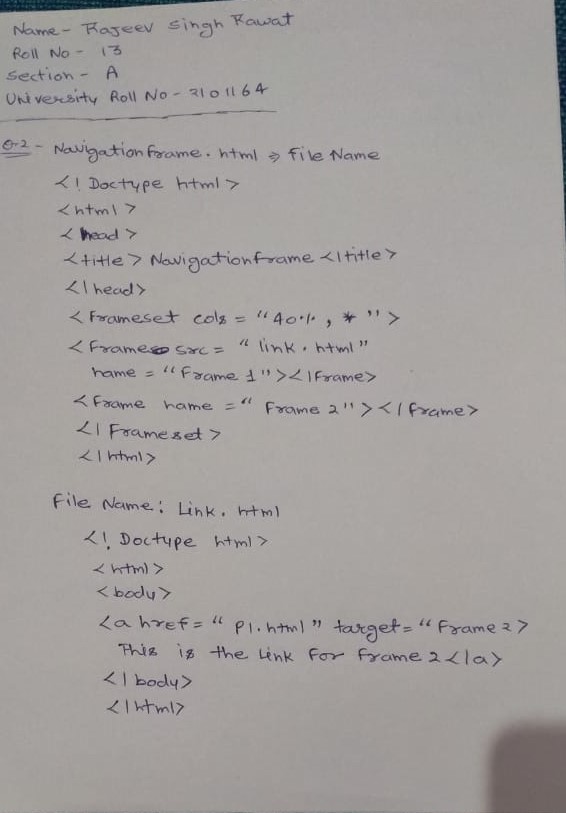 Name - Rajeev Singh Rawat
Roll No - 13
Section - A
University Roll No - 2101164
Q-2 - Navigationframe.html ⇒ file Name
<! Doctype html>
<html>
<head>
<title> Navigationframe </title>
</head>
<frameset cols = "40%, *">
<frame src = "link.html"
name = "Frame 1"></frame>
<frame name = "Frame 2"></frame>
</Frameset>
</html>
File Name: Link.html
<! Doctype html>
<html>
<body>
<a href = "P1.html" target = "Frame 2>
This is the Link for Frame 2</a>
</body>
</html>